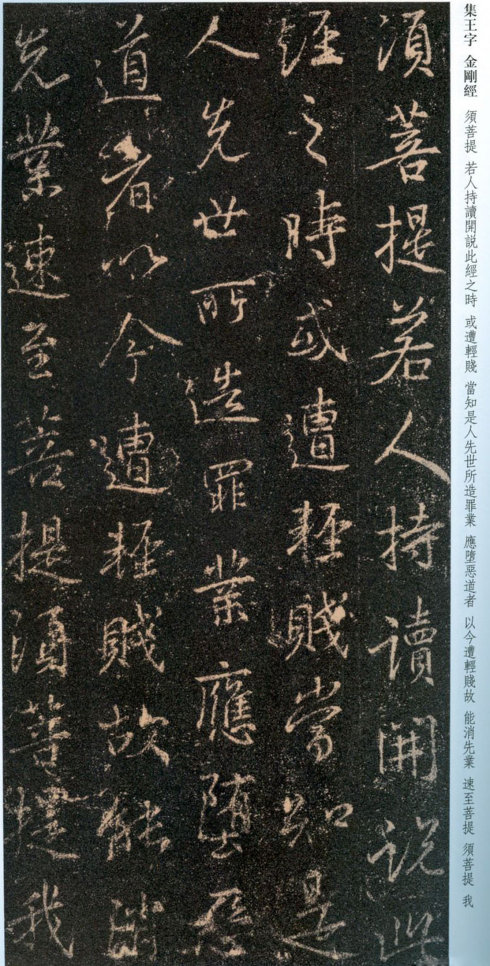 集王字 金剛經 須菩提 若人持讀開説此經之時 或遭輕賤 當知是人先世所造罪業 應墮惡道者 以今遭輕賤故 能消先業 速至菩提 須菩提 我
須菩提若人持讀開説此
經之時或遭輕賤當知是
人先世所造罪業應堕惡
道者以今遭輕賤故能消
先業速至菩提須菩提我